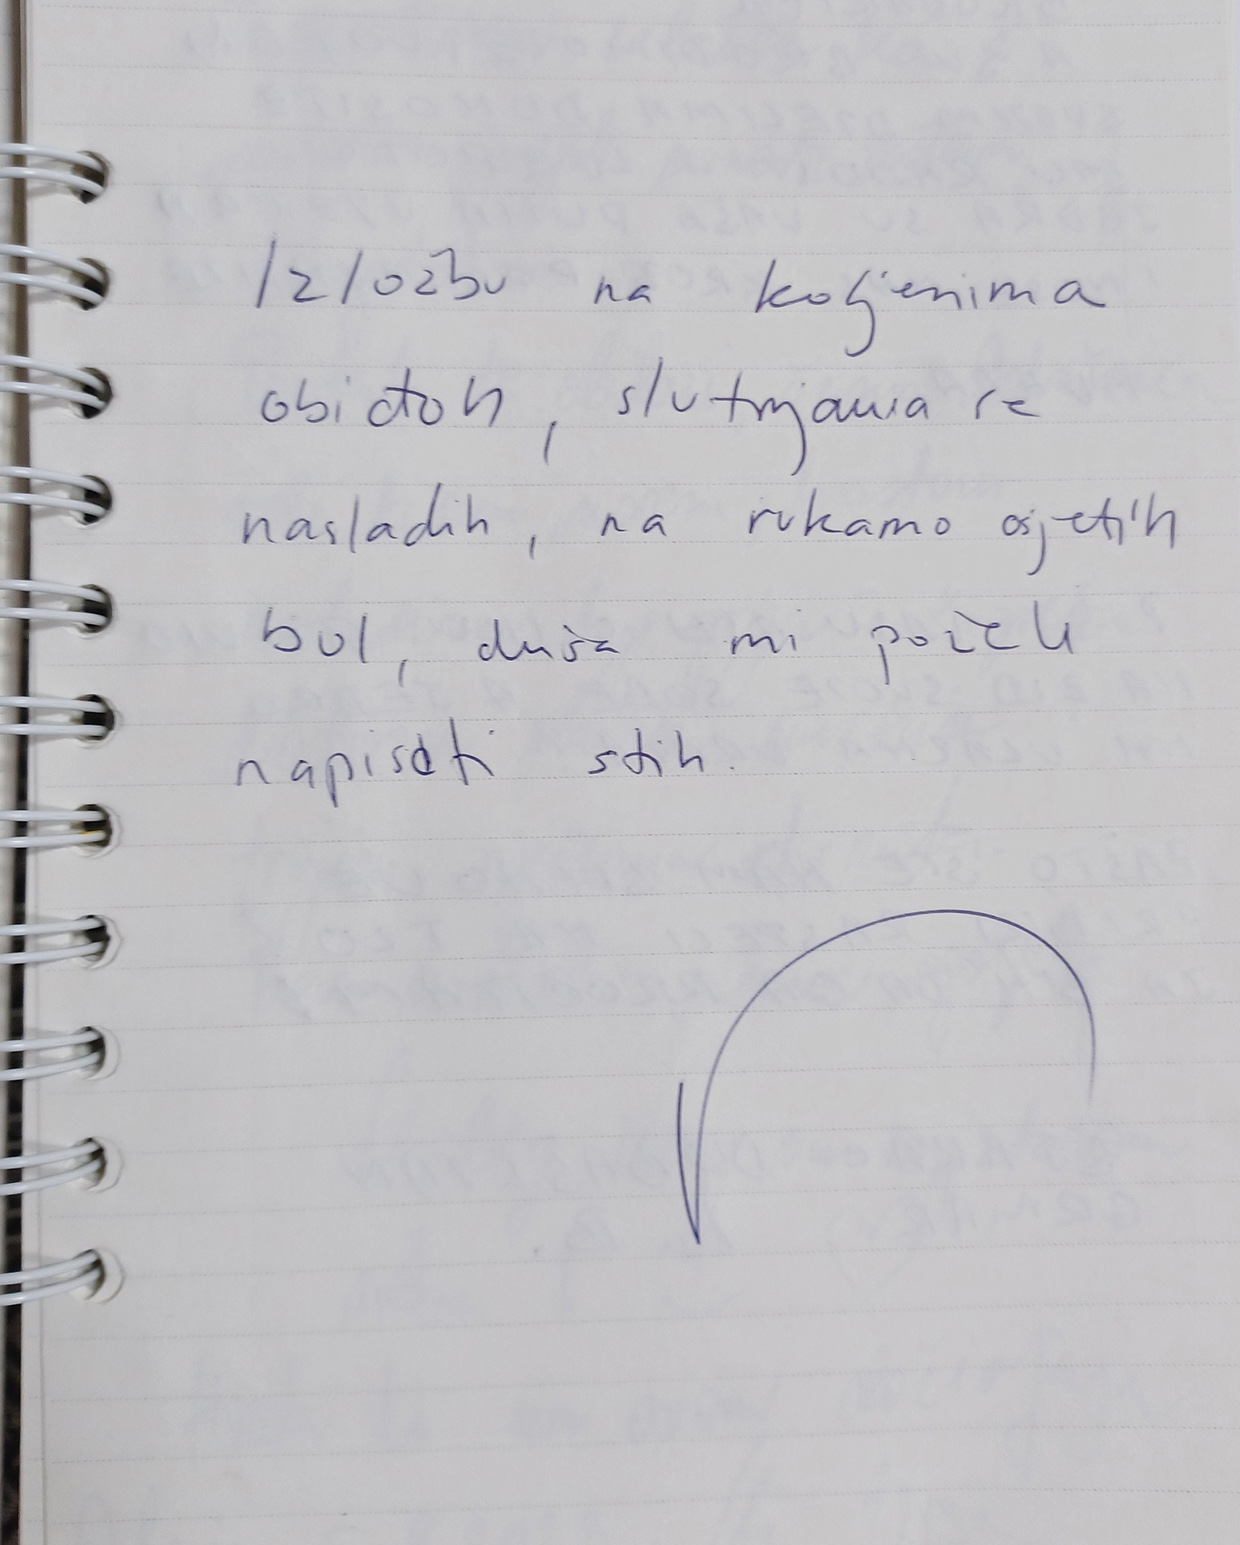 Izložbu na koljenima
obidoh, slutnjama se
nasladih, na rukama osjetih
bol, duša mi poželi
napisati stih.